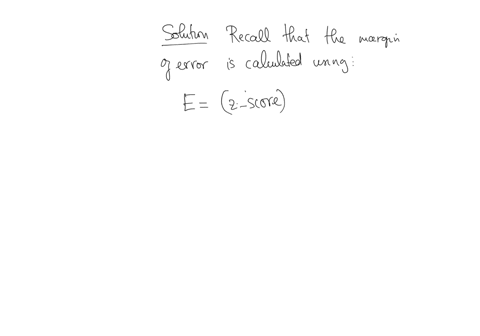 Solution Recall that the margin
of error is calculated using:
E = (z-score)